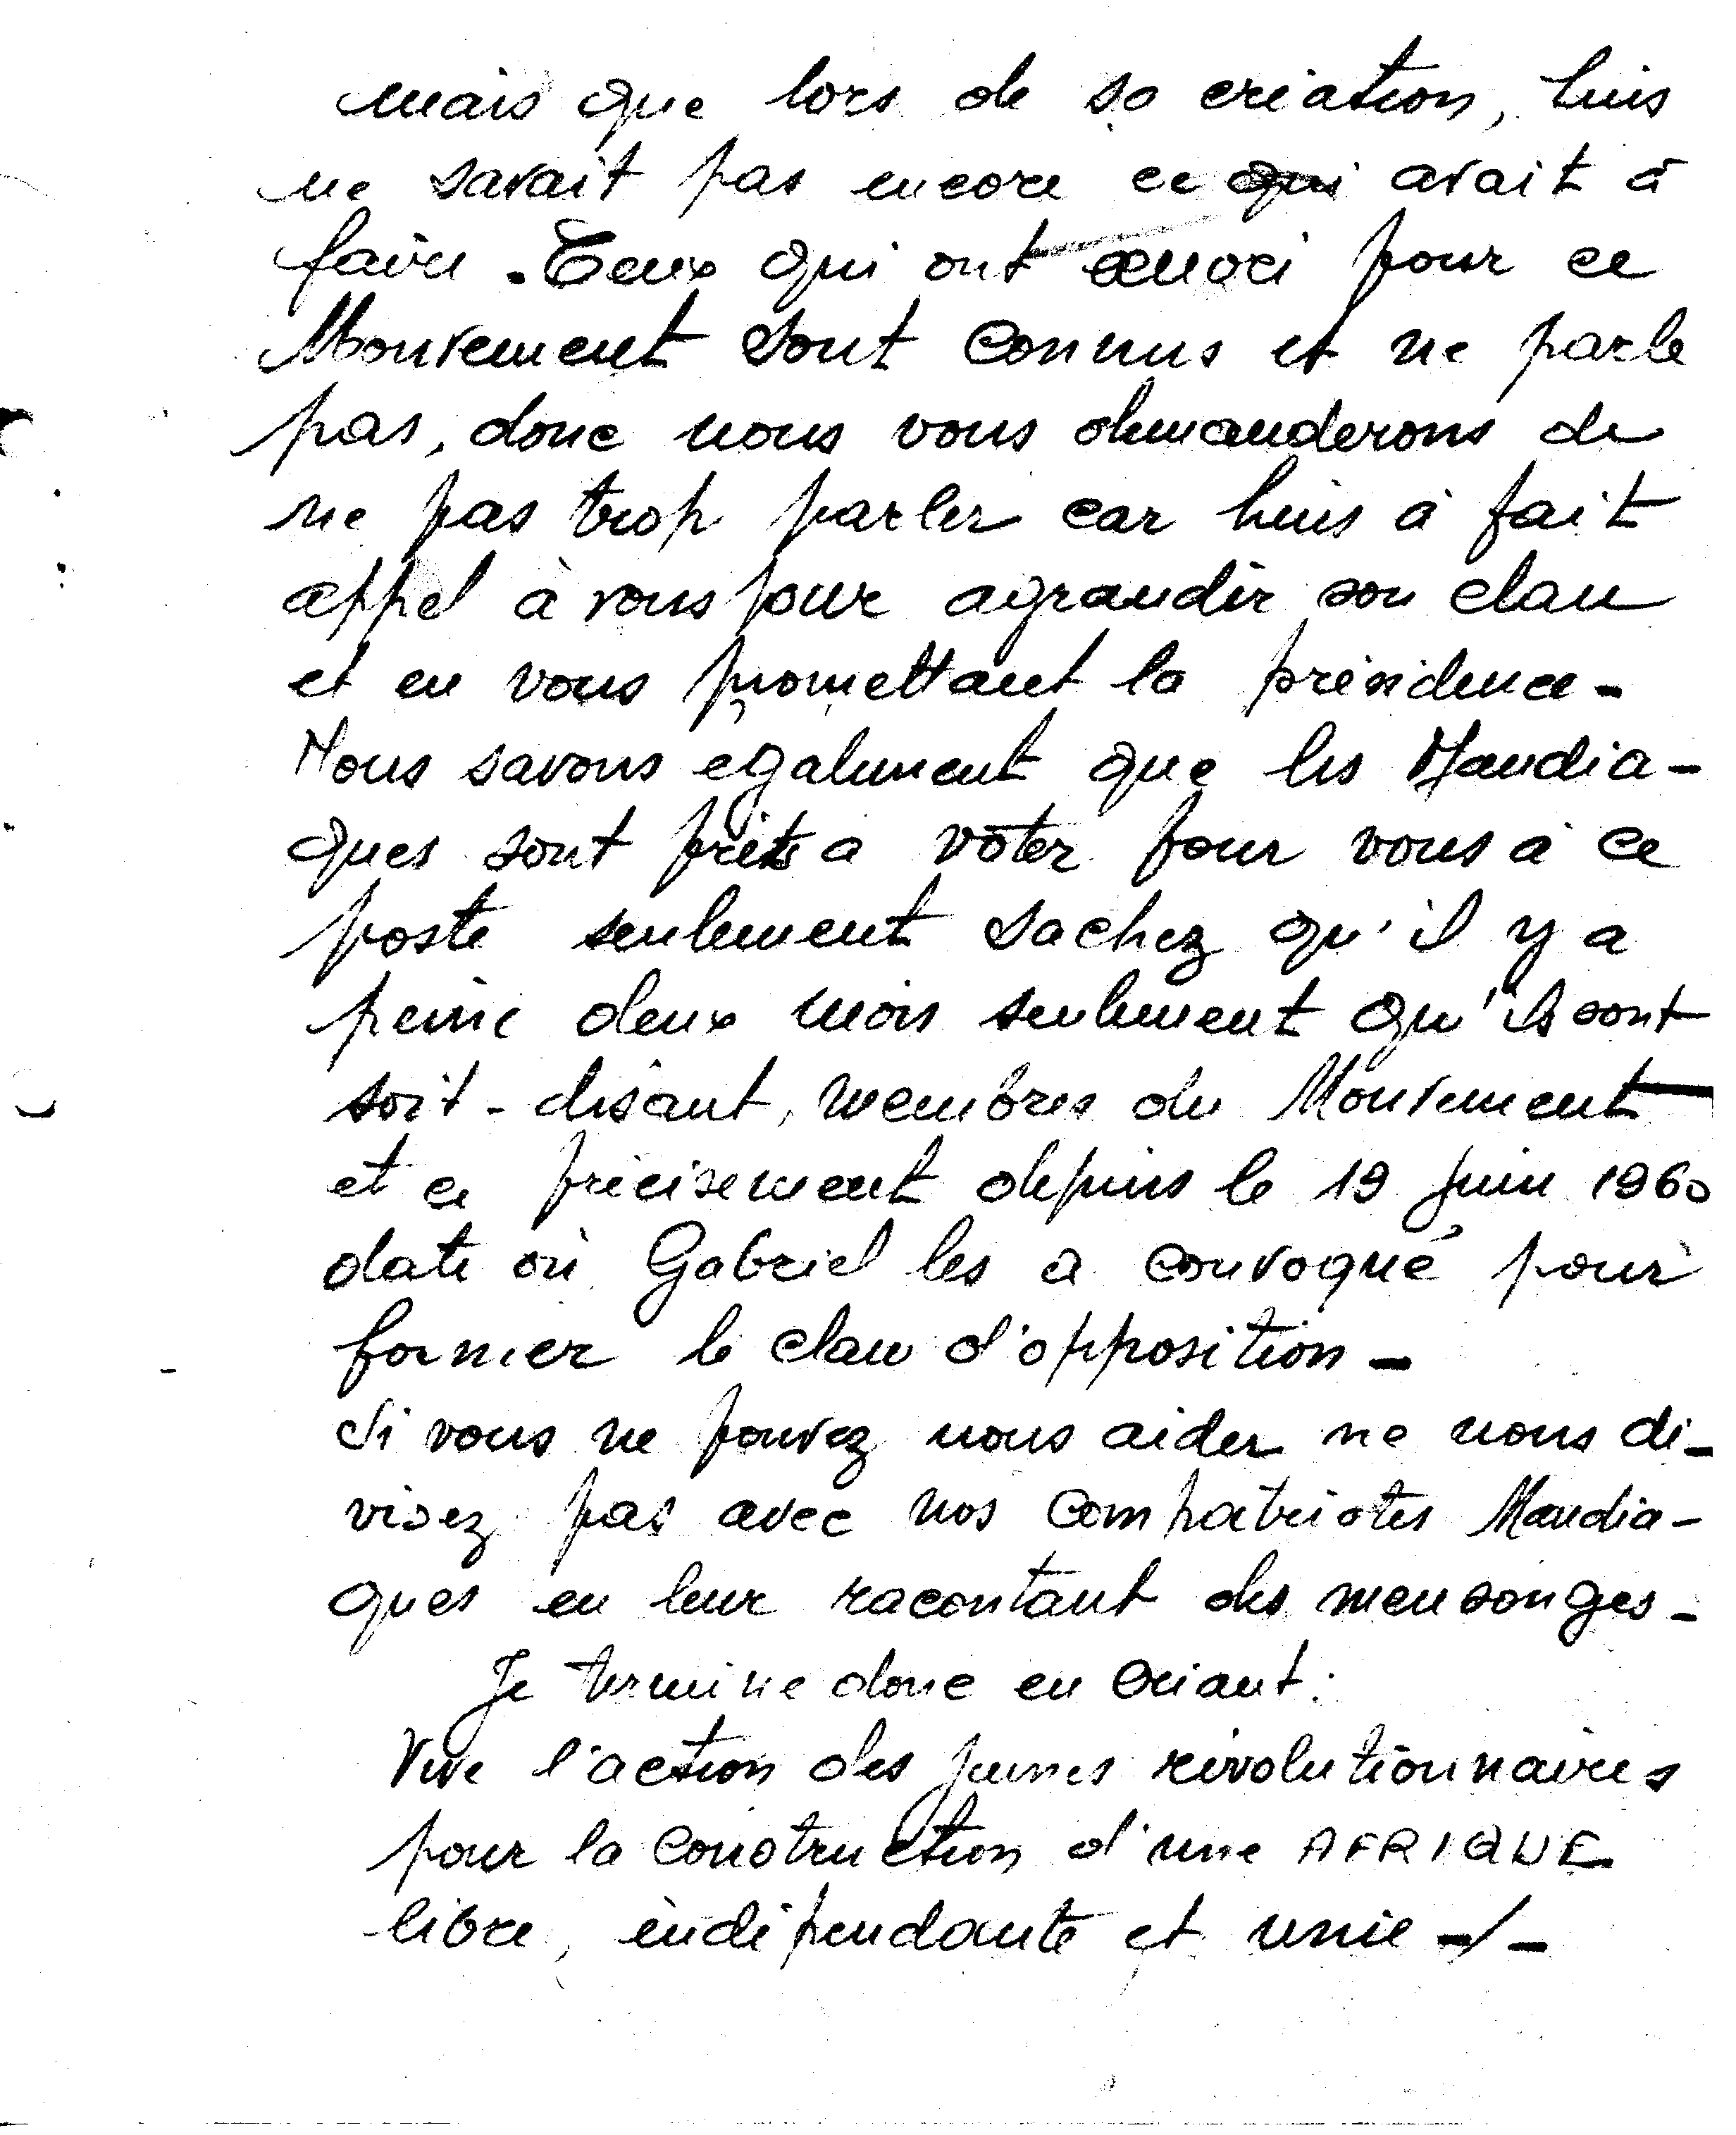 mais que lors de sa création, Luis
ne savait pas encore ce qui avait à
faire. Ceux qui ont œuvré pour ce
Mouvement sont connus et ne parle
pas, donc nous vous demanderons de
ne pas trop parler car Luis à fait
appel à vous pour agrandir son clan
et en vous promettant la présidence -
Nous savons également que les Mandia-
ques sont prêts a voter pour vous à ce
poste seulement sachez qu'il y a
peine deux mois seulement qu'ils sont
soit-disant, membres du Mouvement
et ce précisement depuis le 19 Juin 1960
date où Gabriel les a convoqué pour
former le clan d'opposition -
Si vous ne pouvez nous aider ne nous di-
visez pas avec nos compatriotes Mandia-
ques en leur racontant des mensonges -
Je termine donc en criant :
Vive l'action des jeunes révolutionnaires
pour la construction d'une AFRIQUE
libre, indépendante et unie -/-